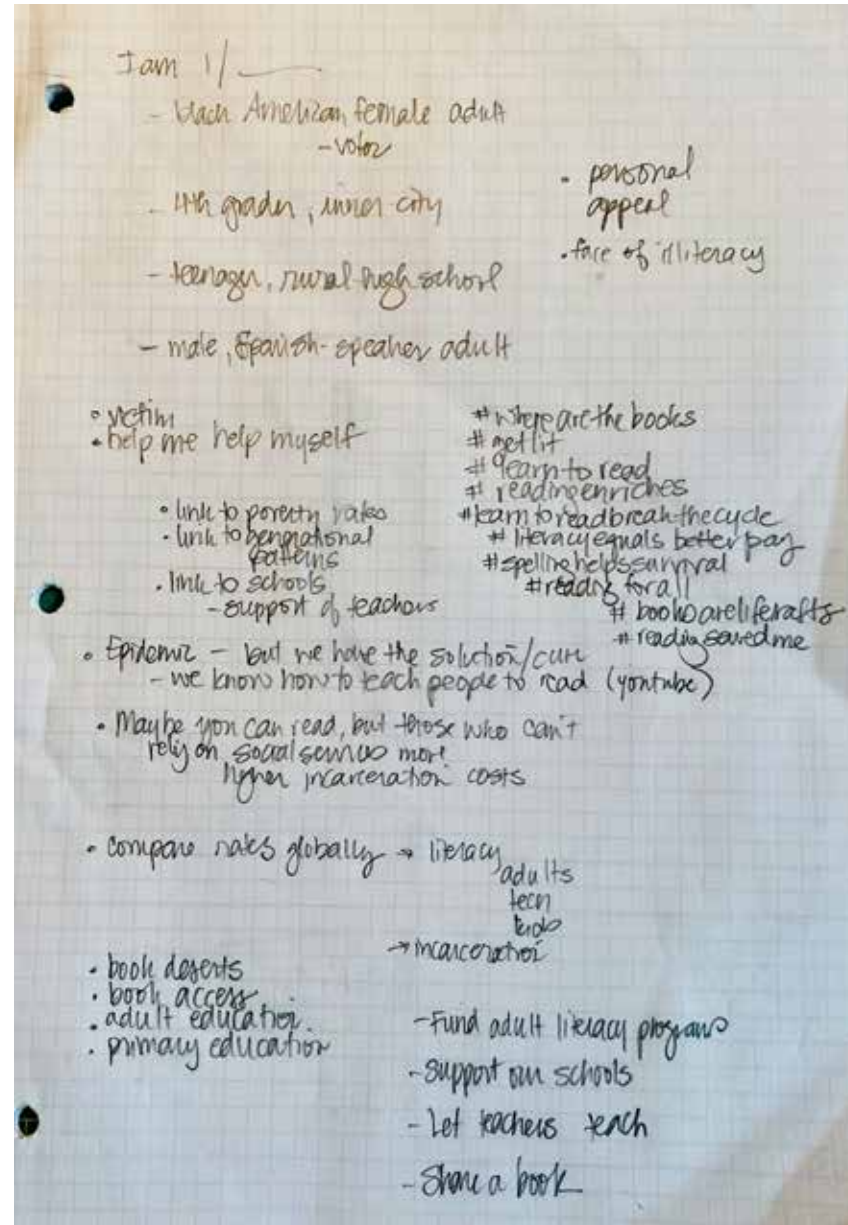 I am 1/
- black American female adult
- voter
- 4th grader, inner city
- teenager, rural high school
- male, Spanish-speaker adult
• personal
appeal
• face of illiteracy
• victim
• help me help myself
• link to poverty rates
• link to
patterns
• link to schools
- support of teachers
# wherearethebooks
# getlit
# learn to read
# readingenriches
#learntoreadbreakthecycle
# literacyequals better pay
#spellinghelpssurvival
#reading for all
# booksareliferafts
# readingsavedme
• Epidemic - but we have the solution/cure
- we know how to teach people to read (youtube)
• Maybe you can read, but those who can't
rely on social services more
higher incarceration costs
• compare rates globally → literacy
adults
teen
kids
→ incarceration
• book deserts
• book access
• adult education
• primary education
- Fund adult literacy programs
- Support our schools
- Let teachers teach
- Share a book